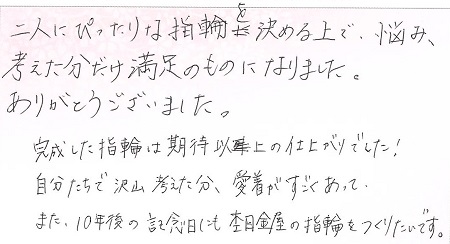 二人にぴったりな指輪を決める上で、悩み、
考えた分だけ満足のものになりました。
ありがとうございました。
完成した指輪は期待以上の仕上がりでした!
自分たちで沢山考えた分、愛着がすごくあって、
また、10年後の記念日にも杢目金屋の指輪をつくりたいです。